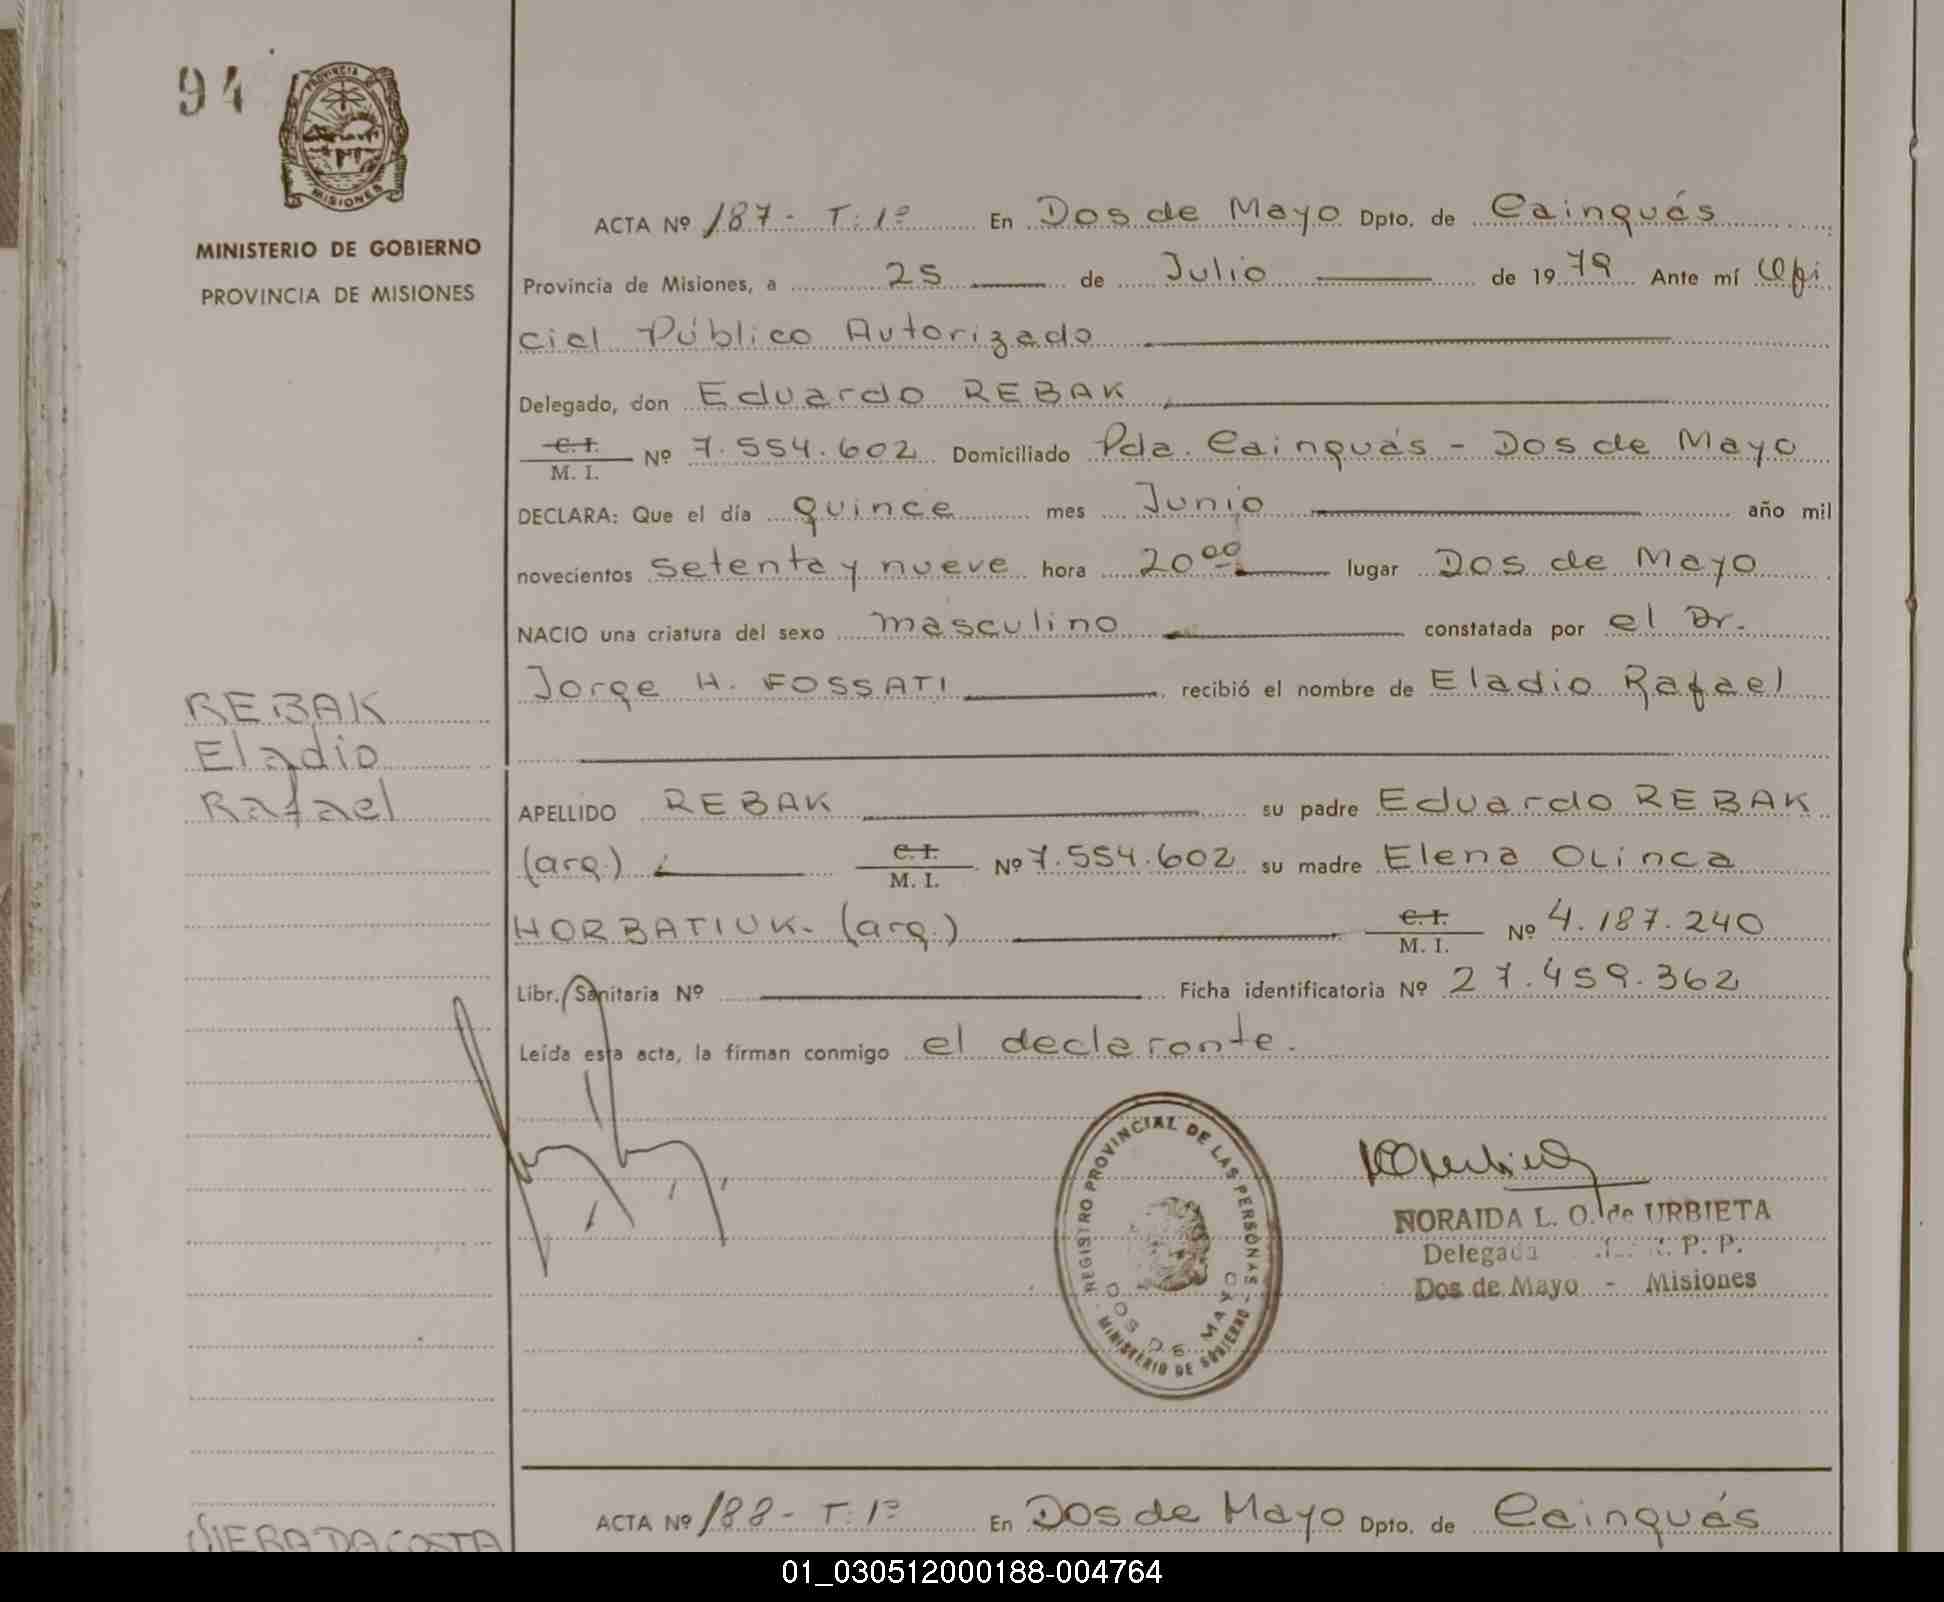 94
PROVINCIA DE
MISIONES
MINISTERIO DE GOBIERNO
PROVINCIA DE MISIONES
ACTA Nº 187 - T: 1º En Dos de Mayo Dpto. de Cainguás
Provincia de Misiones, a 25 de Julio de 1979 Ante mí Ofi
cial Público Autorizado
Delegado, don Eduardo REBAK
C. I.
M. I. Nº 7.554.602 Domiciliado Pda. Cainguás - Dos de Mayo
DECLARA: Que el día quince mes Junio año mil
novecientos setenta y nueve hora 20⁰⁰ lugar Dos de Mayo
NACIO una criatura del sexo masculino constatada por el Dr.
Jorge H. FOSSATI recibió el nombre de Eladio Rafael
REBAK
Eladio
Rafael
APELLIDO REBAK su padre Eduardo REBAK
(arg.) C. I.
M. I. Nº 7.554.602 su madre Elena OLinca
HORBATIUK. (arg.) C. I.
M. I. Nº 4.187.240
Libr. Sanitaria Nº Ficha identificatoria Nº 27.459.362
Leída esta acta, la firman conmigo el declarante.
REGISTRO PROVINCIAL DE LAS PERSONAS
DOS DE MAYO
MINISTERIO DE GOBIERNO
NORAIDA L. O. de URBIETA
Delegada P. P.
Dos de Mayo - Misiones
ACTA Nº 188 - T: 1º En Dos de Mayo Dpto. de Cainguás
DA COSTA
01_030512000188-004764